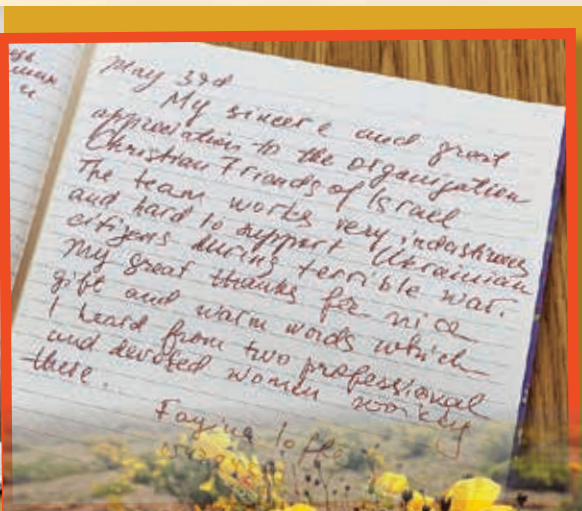 May 3rd
My sincere and great
appreciation to the organization
Christian Friends of Israel
The team works very industriously
and hard to support Ukrainian
citizens during terrible war.
My great thanks for nice
gift and warm words which
I heard from two professional
and devoted women working
there.
Fayina